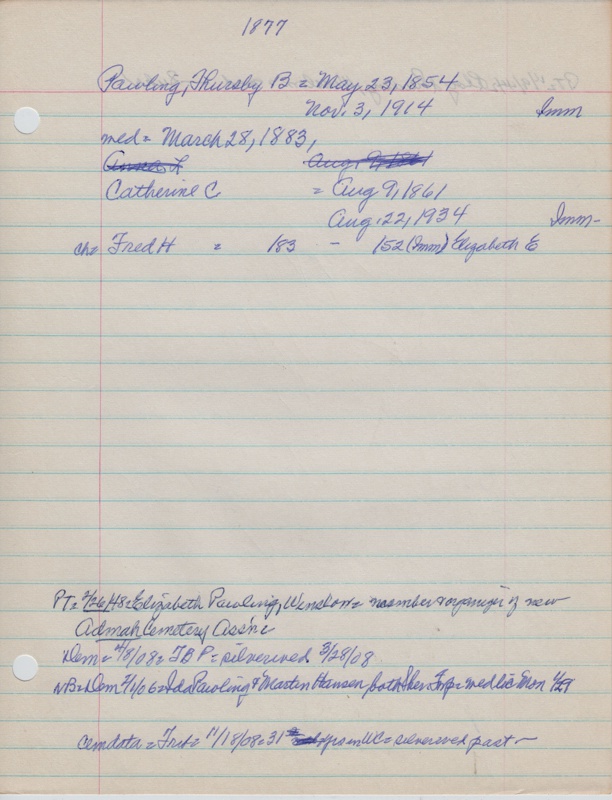 1877
Pawling, Thursby B = May 23, 1854
Nov. 3, 1914 Imm
med = March 28, 1883,
Aug. 9, 1861
Catherine C = Aug 9, 1861
Aug. 22, 1934 Imm-
ch= Fred H = 183 - 152 (Imm) Elizabeth E
PT= 2/26/48= Elizabeth Pawling, Winslow= member & organizer of new
Admah Cemetery Ass'n
Dem= 4/8/08= TBP= silverwed 3/28/08
NB= Dem 2/1/06= Ida Pawling & Martin Hansen, both Sher Twp= wed lic Mon 1/29
Cemdata= Trib= 11/18/08= 31 yrs in WC= silverwed past -